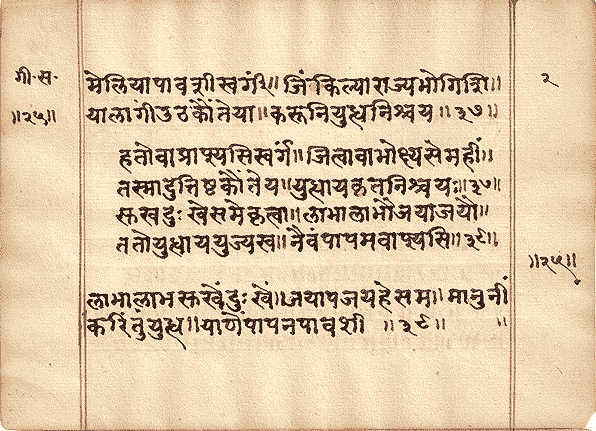 गी॰स॰
॥२५॥
मेलियापावशीस्वर्ग॥जिंकिल्याराज्यभोगिशि॥
यालागीउठकौंतेया॥करूनियुध्यनिश्चय॥३७॥
हतोवाप्राप्स्यसिस्वर्गं॥जित्वावाभोक्ष्यसेमहीं
तस्मादुत्तिष्ठकौंतेय॥युधायकृतनिश्चयः॥३७॥
सुखदुःखेसमेकृत्वा॥लाभालाभौजयाजयौ॥
ततोयुधाययुज्यस्व॥नैवंपापमवाप्स्यसि॥३८॥
लाभालाभसुखेंदुःखें॥जयापजयहेसम॥मानुनीं
करिंतुंयुध्य॥याणेंपापनपावशी ॥३८॥ ॥
२
॥२५॥